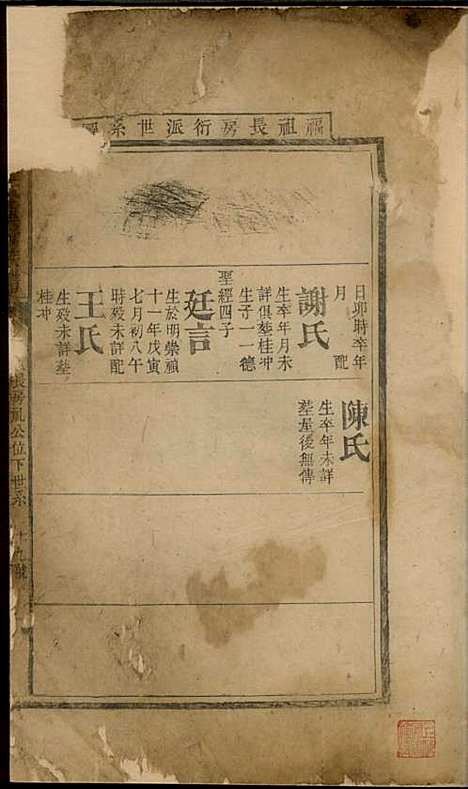 福祖長房衍派世系
日卯時卒年
月 配
謝氏
生卒年月未
詳俱塟桂冲
生子一一德
聖經四子
廷言
生於明崇禎
十一年戊寅
七月初八午
時殁未詳配
王氏
生殁未詳塟
桂冲
陳氏
生卒年未詳
塟屋後無傳
長房 公位下世系
十九號